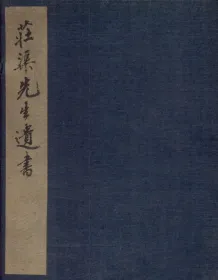 莊渠先生遺書